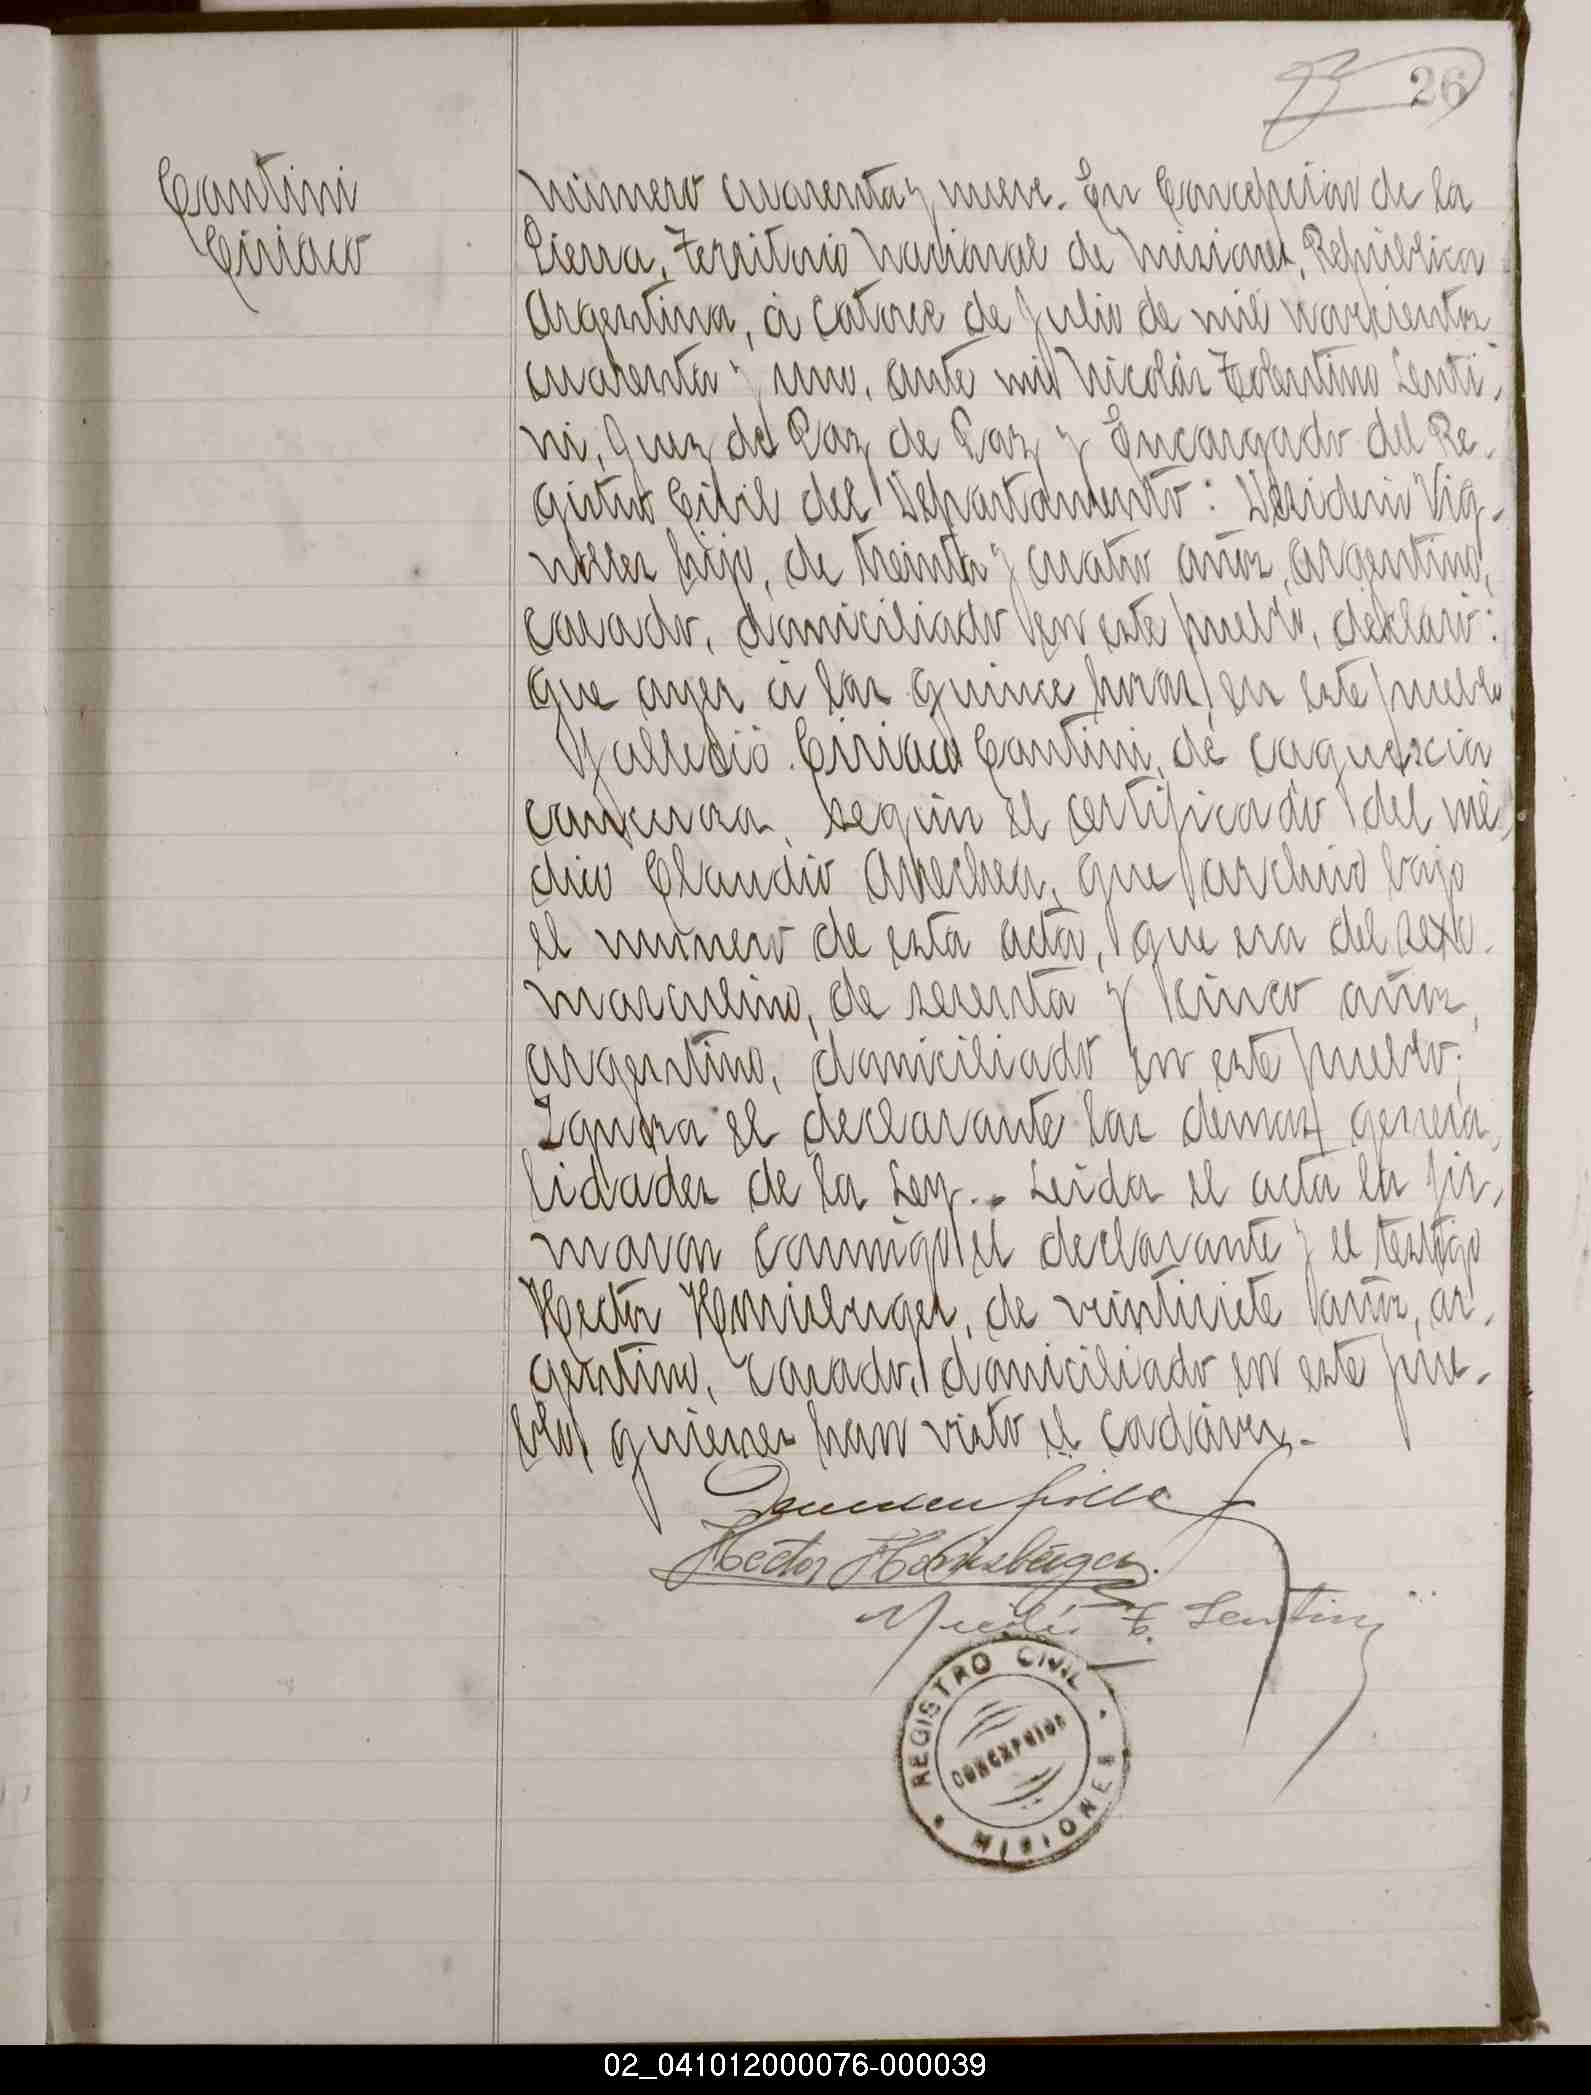 26
Cantini
Ciriaco
Número cuarenta y nueve. En Concepción de la
Sierra, Territorio Nacional de Misiones, República
Argentina, á catorce de Julio de mil novecientos
cuarenta y uno, ante mi Nicolás Tolentino Lenti-
ni, Juez del Paz de Paz y Encargado del Re-
gistro Civil del Departamento: Desiderio Vig-
nolles hijo, de treinta y cuatro años, argentino,
casado, domiciliado en este pueblo, declaró:
Que ayer á las quince horas, en este pueblo
falleció Ciriaco Cantini, de caquexia
cancerosa, según el certificado del mé-
dico Claudio Arrechea, que archivo bajo
el número de esta acta, que era del sexo
masculino, de sesenta y cinco años,
argentino, domiciliado en este pueblo;
Ignora el declarante las demas genera-
lidades de la Ley.. Leída el acta la fir-
maron conmigo el declarante y el testigo
Hector Honisberger, de veintisiete años, ar-
gentino, casado, domiciliado en este pue-
blo, quienes han visto el cadáver.-
Hector Honisberger
Nicolás T. Lentini
REGISTRO CIVIL
CONCEPCION
MISIONES
02_041012000076-000039